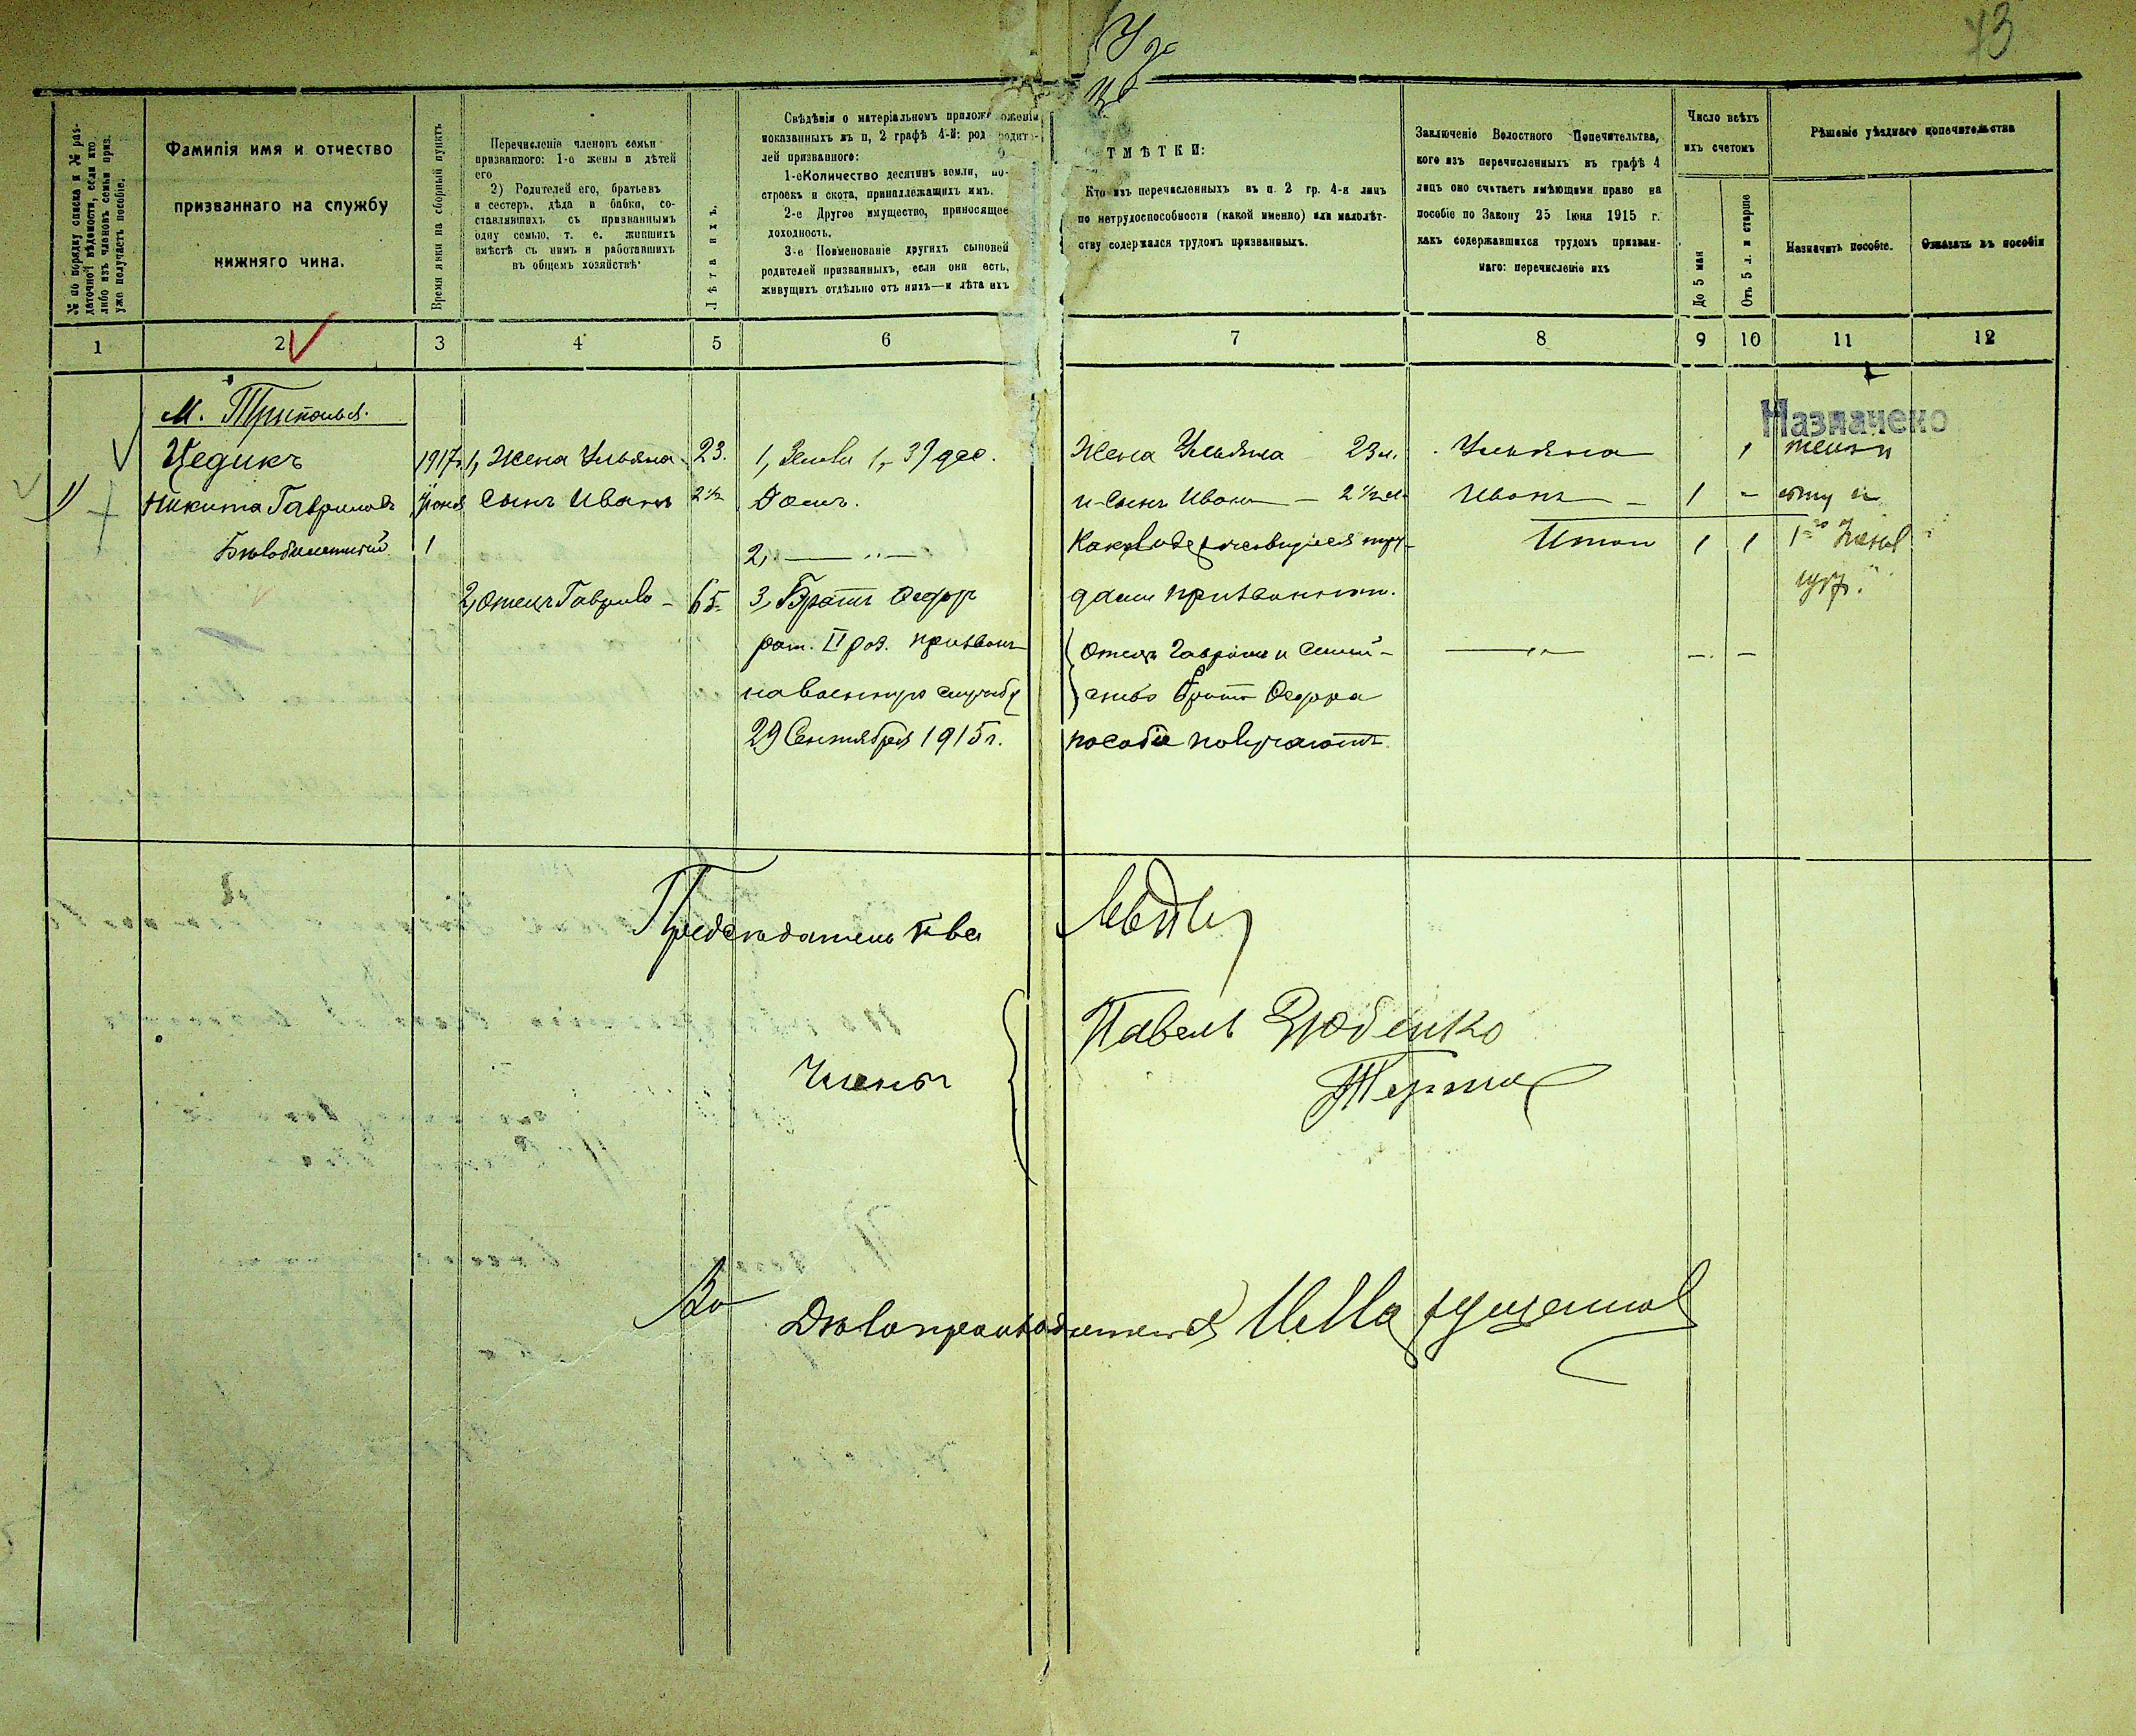 43
№ по порядку списка и № раз-
даточной вѣдомости, если кто
либо изъ членовъ семьи приз.
уже получаетъ пособіе.
Фамилія имя и отчество
призваннаго на службу
нижняго чина.
Время явки на сборный пунктъ
Перечисленіе членовъ семьи
призваннаго: 1-е жены и дѣтей
его
2) Родителей его, братьевъ
и сестеръ, дѣда и бабки, со-
ставлявшихъ съ призваннымъ
одну семью, т. е. жившихъ
вмѣстѣ съ нимъ и работавшихъ
въ общемъ хозяйствѣ.
Лѣта ихъ.
Свѣдѣнія о матеріальномъ приложеніи
показанныхъ въ п, 2 графѣ 4-й: род родите-
лей призваннаго:
1-е Количество десятинъ земли, по-
строекъ и скота, принадлежащихъ имъ.
2-е Другое имущество, приносящее
доходность.
3-е Поименованіе другихъ сыновей
родителей призванныхъ, если они есть,
живущихъ отдѣльно отъ нихъ—и лѣта ихъ
ТМѢТКИ:
Кто изъ перечисленныхъ въ п. 2 гр. 4-я лицъ
по нетрудоспособности (какой именно) или малолѣт-
ству содержался трудомъ призванныхъ.
Заключеніе Волостного Попечительства,
кого изъ перечисленныхъ въ графѣ 4
лицъ оно считаетъ имѣющими право на
пособіе по Закону 25 Іюня 1915 г.
какъ содержавшихся трудомъ призван-
наго: перечисленіе ихъ
Число всѣхъ
ихъ счетомъ
До 5 мая
Отъ 5 л. и старше
Рѣшеніе уѣзднаго попечительства
Назначить пособіе.
Отказать въ пособіи
1 2 3 4 5 6 7 8 9 10 11 12
М. Триполья.
Цедикъ 1917г. 1, Жена Ульяна 23. 1, Земли 1,37 дес. Жена Ульяна 23 л. Ульяна 1
Назначено
женѣ
1) Никита Гавриловъ сынъ Иванъ 2½ Домъ. и сынъ Иванъ — 2½ л. Иванъ — 1 -
Бѣлобилетный 1 2, — „ — Итого 1 1
2, отецъ Гаврило - 65. 3, Братъ Федоръ призваннаго.
рат. II раз. призванъ отецъ Гаврило и семей-
на военную службу ство брата Федора — „ — - -
29 Сентября 1915 г. пособіе получаютъ.
Предсѣдатель
Члены
Павелъ Зюбенко
Дѣлопроизводителя